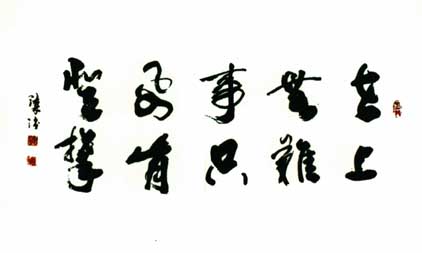 世上
無難
事只
要肯
登攀